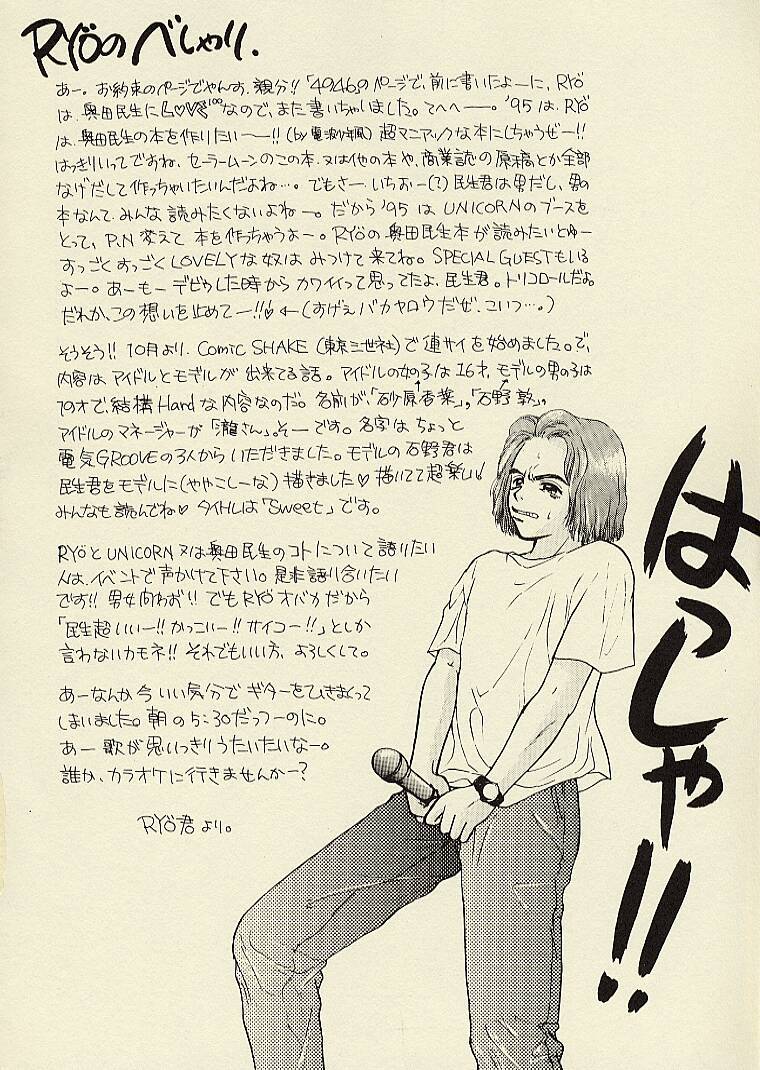 RYÖのべしゃり.
あー。お約束のページでやんす、親分!!「4946」のページで、前に書いたよーに、RYÖ
は、奥田民生にLOVE¹⁰⁰なので、また書いちゃいました。てへへー。'95は、RYÖ
は、奥田民生の本を作りたいー!!(by 電波少年風)超マニアックな本にしちゃうぜー!!
はっきりいってですね、セーラームーンのこの本、又は他の本や、商業誌の原稿とか全部
なげだして作っちゃいたいんだよね…。でもさー、いちおー(?)民生君は男だし、男の
本なんて、みんな読みたくないよねー。だから'95はUNICORNのブースを
とって、P.N変えて本を作っちゃうよー。RYÖの奥田民生本が読みたいとゆー
すっごくすっごくLOVELYな奴はみつけて来てね。SPECIAL GUESTもいる
よー。あーもーデビゥした時からカワイイって思ってたよ、民生君。トリコロールだよ。
だれか、この想いを止めてー!!♡←(すげえバカヤロウだぜ、こいつ…。)
そうそう!!10月より、Comic SHAKE(東京三世社)で連サイを始めました。で、
内容はアイドルとモデルが出来てる話。アイドルの女の子は16才、モデルの男の子は
19才で、結構Hardな内容なのだ。名前が、「砂原香菜」,「石野敦」。
アイドルのマネージャーが「瀧さん」。そーです。名字はちょっと
電気GROOVEの3人からいただきました。モデルの石野君は
民生君をモデルに(ややこしーな)描きました♡描いてて超楽しい!
みんなも読んでね♡タイトルは「Sweet」です。
RYÖとUNICORN又は奥田民生のコトについて語りたい
人は、イベントで声かけて下さい。是非語り合いたい
です!!男女問わず!!でもRYÖオバカだから
「民生超いいー!!かっこいー!!サイコー!!」としか
言わないカモネ!!それでもいい方、よろしくして。
あーなんか今いい気分でギターをひきまくって
しまいました。朝の5:30だっつーのに。
あー歌が思いっきりうたいたいなー。
誰か、カラオケに行きませんかー?
RYÖ君より。
はっしゃ!!